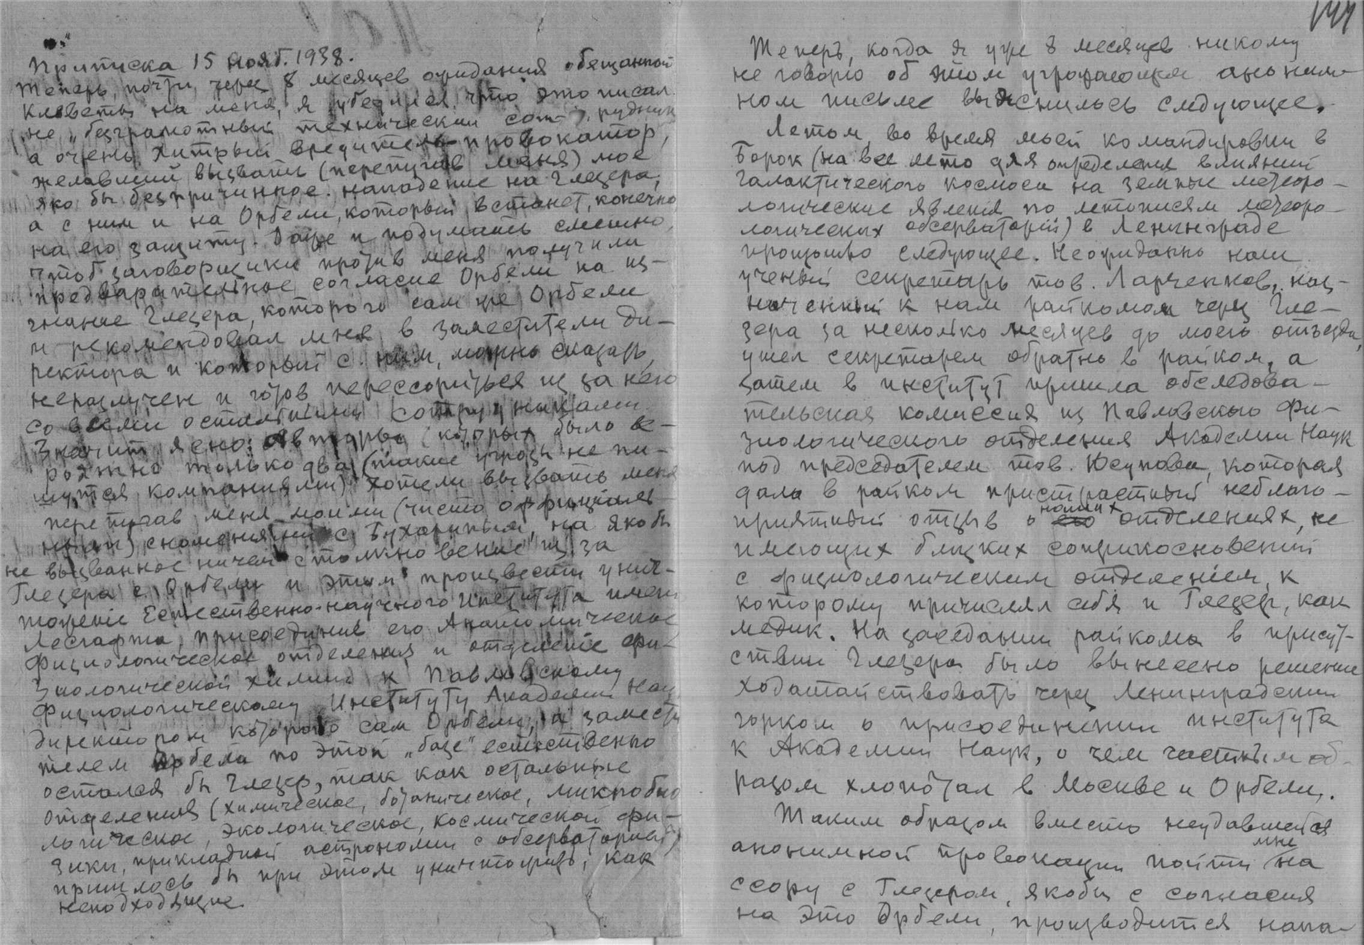 Приписка 15 нояб. 1938.
Теперь, почти через 8 месяцев ожидания обещанной
клеветы на меня, я убедился, что это писал
не „безграмотный технический сотрудник
а очень хитрый вредитель-провокатор,
желавший вызвать (перепугав меня) мое
яко бы беспричинное нападение на Глезера,
а с ним и на Орбели, который встанет, конечно
на его защиту. Даже и подумать смешно,
чтоб заговорщики против меня получили
предварительное согласие Орбели на из-
гнание Глезера, которого сам же Орбели
и рекомендовал мне в заместители ди-
ректора и который с ним, можно сказать,
неразлучен и готов перессориться из за него
со всеми остальными сотрудниками.
Значит ясно: авторы (которых было ве-
роятно только два (такие угрозы не пи-
шутся компаниями) хотели вызвать меня
перепугав меня моими (чисто официаль-
ными) сношениями с Бухариным, на якобы
не вызванное ничем столкновение из за
Глезера с Орбели и этим произвести унич-
тожение Естественно-научного Института имени
Лесгафта, присоединив его Анатомическое
физиологическое отделения и отделение фи-
зиологической химии к Павловскому
физиологическому Институту Академии Наук
директором которого сам Орбели, а замести
телем Орбели по этой „базе" естественно
остался бы Глезер, так как остальные
отделения (химическое, ботаническое, микробио
логическое, экологическое, космической фи-
зики, прикладной астрономии с обсерваторией)
пришлось бы при этом уничтожить, как
неподходящие.
144
Теперь, когда я уже 8 месяцев никому
не говорю об этом угрожающем аноним-
ном письме выяснилось следующее.
Летом, во время моей командировки в
Борок (на все лето для определения влияний
галактического космоса на земные метеоро-
логические явления по летописям метеоро-
логических обсерваторий) в Ленинграде
произошло следующее. Неожиданно наш
ученый секретарь тов. Ларченков, наз-
наченный к нам райкомом через Гле-
зера за несколько месяцев до моего отъезда,
ушел секретарем обратно в райком, а
затем в институт пришла обследова-
тельская комиссия из Павловского Фи-
зиологического отделения Академии Наук
под председателем тов. Юсупова, которая
дала в райком пристрастный неблаго-
приятный отзыв о наших отделениях, не
имеющих близких соприкосновений
с физиологическим отделением, к
которому причислял себя и Глезер, как
медик. На заседании райкома в присут-
ствии Глезера было вынесено решение
ходатайствовать через Ленинградский
горком о присоединении института
к Академии Наук, о чем частным об-
разом хлопотал в Москве и Орбели.
Таким образом вместо неудавшейся
анонимной провокации пойти мне на
ссору с Глезером, якобы с согласия
на это Орбели, производится напа-